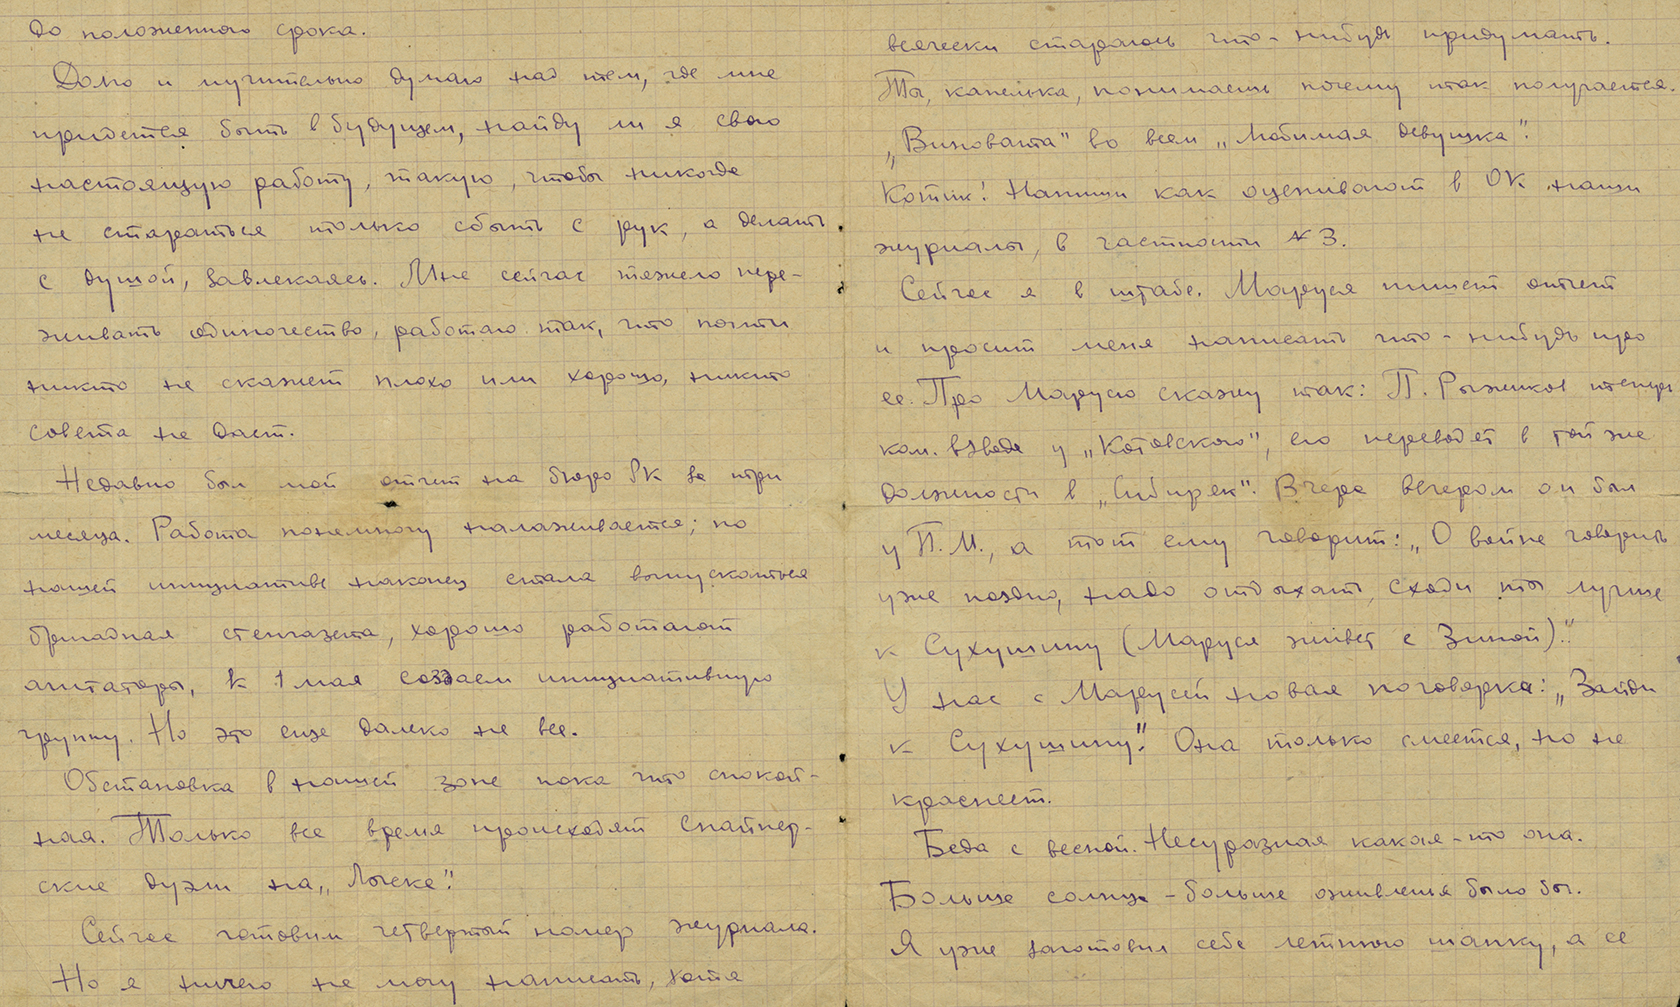 до положенного срока.
Долго и мучительно думаю над тем, где мне
придется быть в будущем, найду ли я свою
настоящую работу, такую, чтобы никогда
не стараться только сбыть с рук, а делать
с душой, завлекаясь. Мне сейчас тяжело пере-
живать одиночество, работаю так, что почти
никто не скажет плохо или хорошо, никто
совета не даст.
Недавно был мой отчет на бюро РК за три
месяца. Работа понемногу налаживается; по
нашей инициативе наконец стала выпускаться
бригадная стенгазета, хорошо работают
агитаторы, к 1 мая создаем инициативную
группу. Но это еще далеко не все.
Обстановка в нашей зоне пока что спокой-
ная. Только все время происходят снайпер-
ские дуэли на „Лыске".
Сейчас готовим четвертый номер журнала.
Но я ничего не могу написать, хотя
всячески стараюсь что-нибудь придумать.
Ты, капелька, понимаешь почему так получается.
„Виновата" во всем „любимая девушка".
Котик! Напиши как оценивают в ОК наши
журналы, в частности № 3.
Сейчас я в штабе. Маруся пишет отчет
и просит меня написать что-нибудь про
ее. Про Марусю скажу так: П. Рыжиков теперь
ком. взвода у „Котовского", его переводят в той же
должности в „Сибиряк". Вчера вечером он был
у П.М., а тот ему говорит: „О войне говорить
уже поздно, надо отдыхать, сходи ты лучше
к Сухушину (Маруся живет с Зиной)".
У нас с Марусей новая поговорка: „Зайди
к Сухушину". Она только смеется, но не
краснеет.
Беда с весной. Несуразная какая-то она.
Больше солнца - больше оживления было бы.
Я уже заготовил себе летнюю шапку, а ее